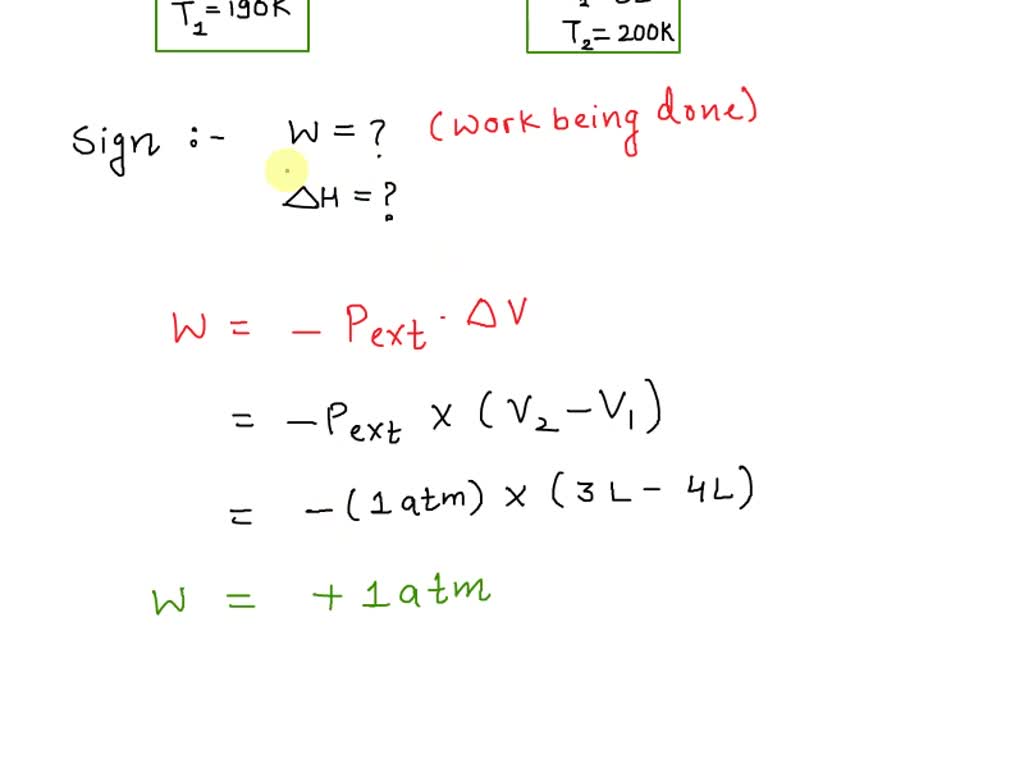 T₁ = 190K
T₂ = 200K
Sign :- W = ? (work being done)
△H = ?
W = - Pext · △V
= - Pext × (V₂ - V₁)
= - (1 atm) × (3 L - 4L)
W = + 1 atm